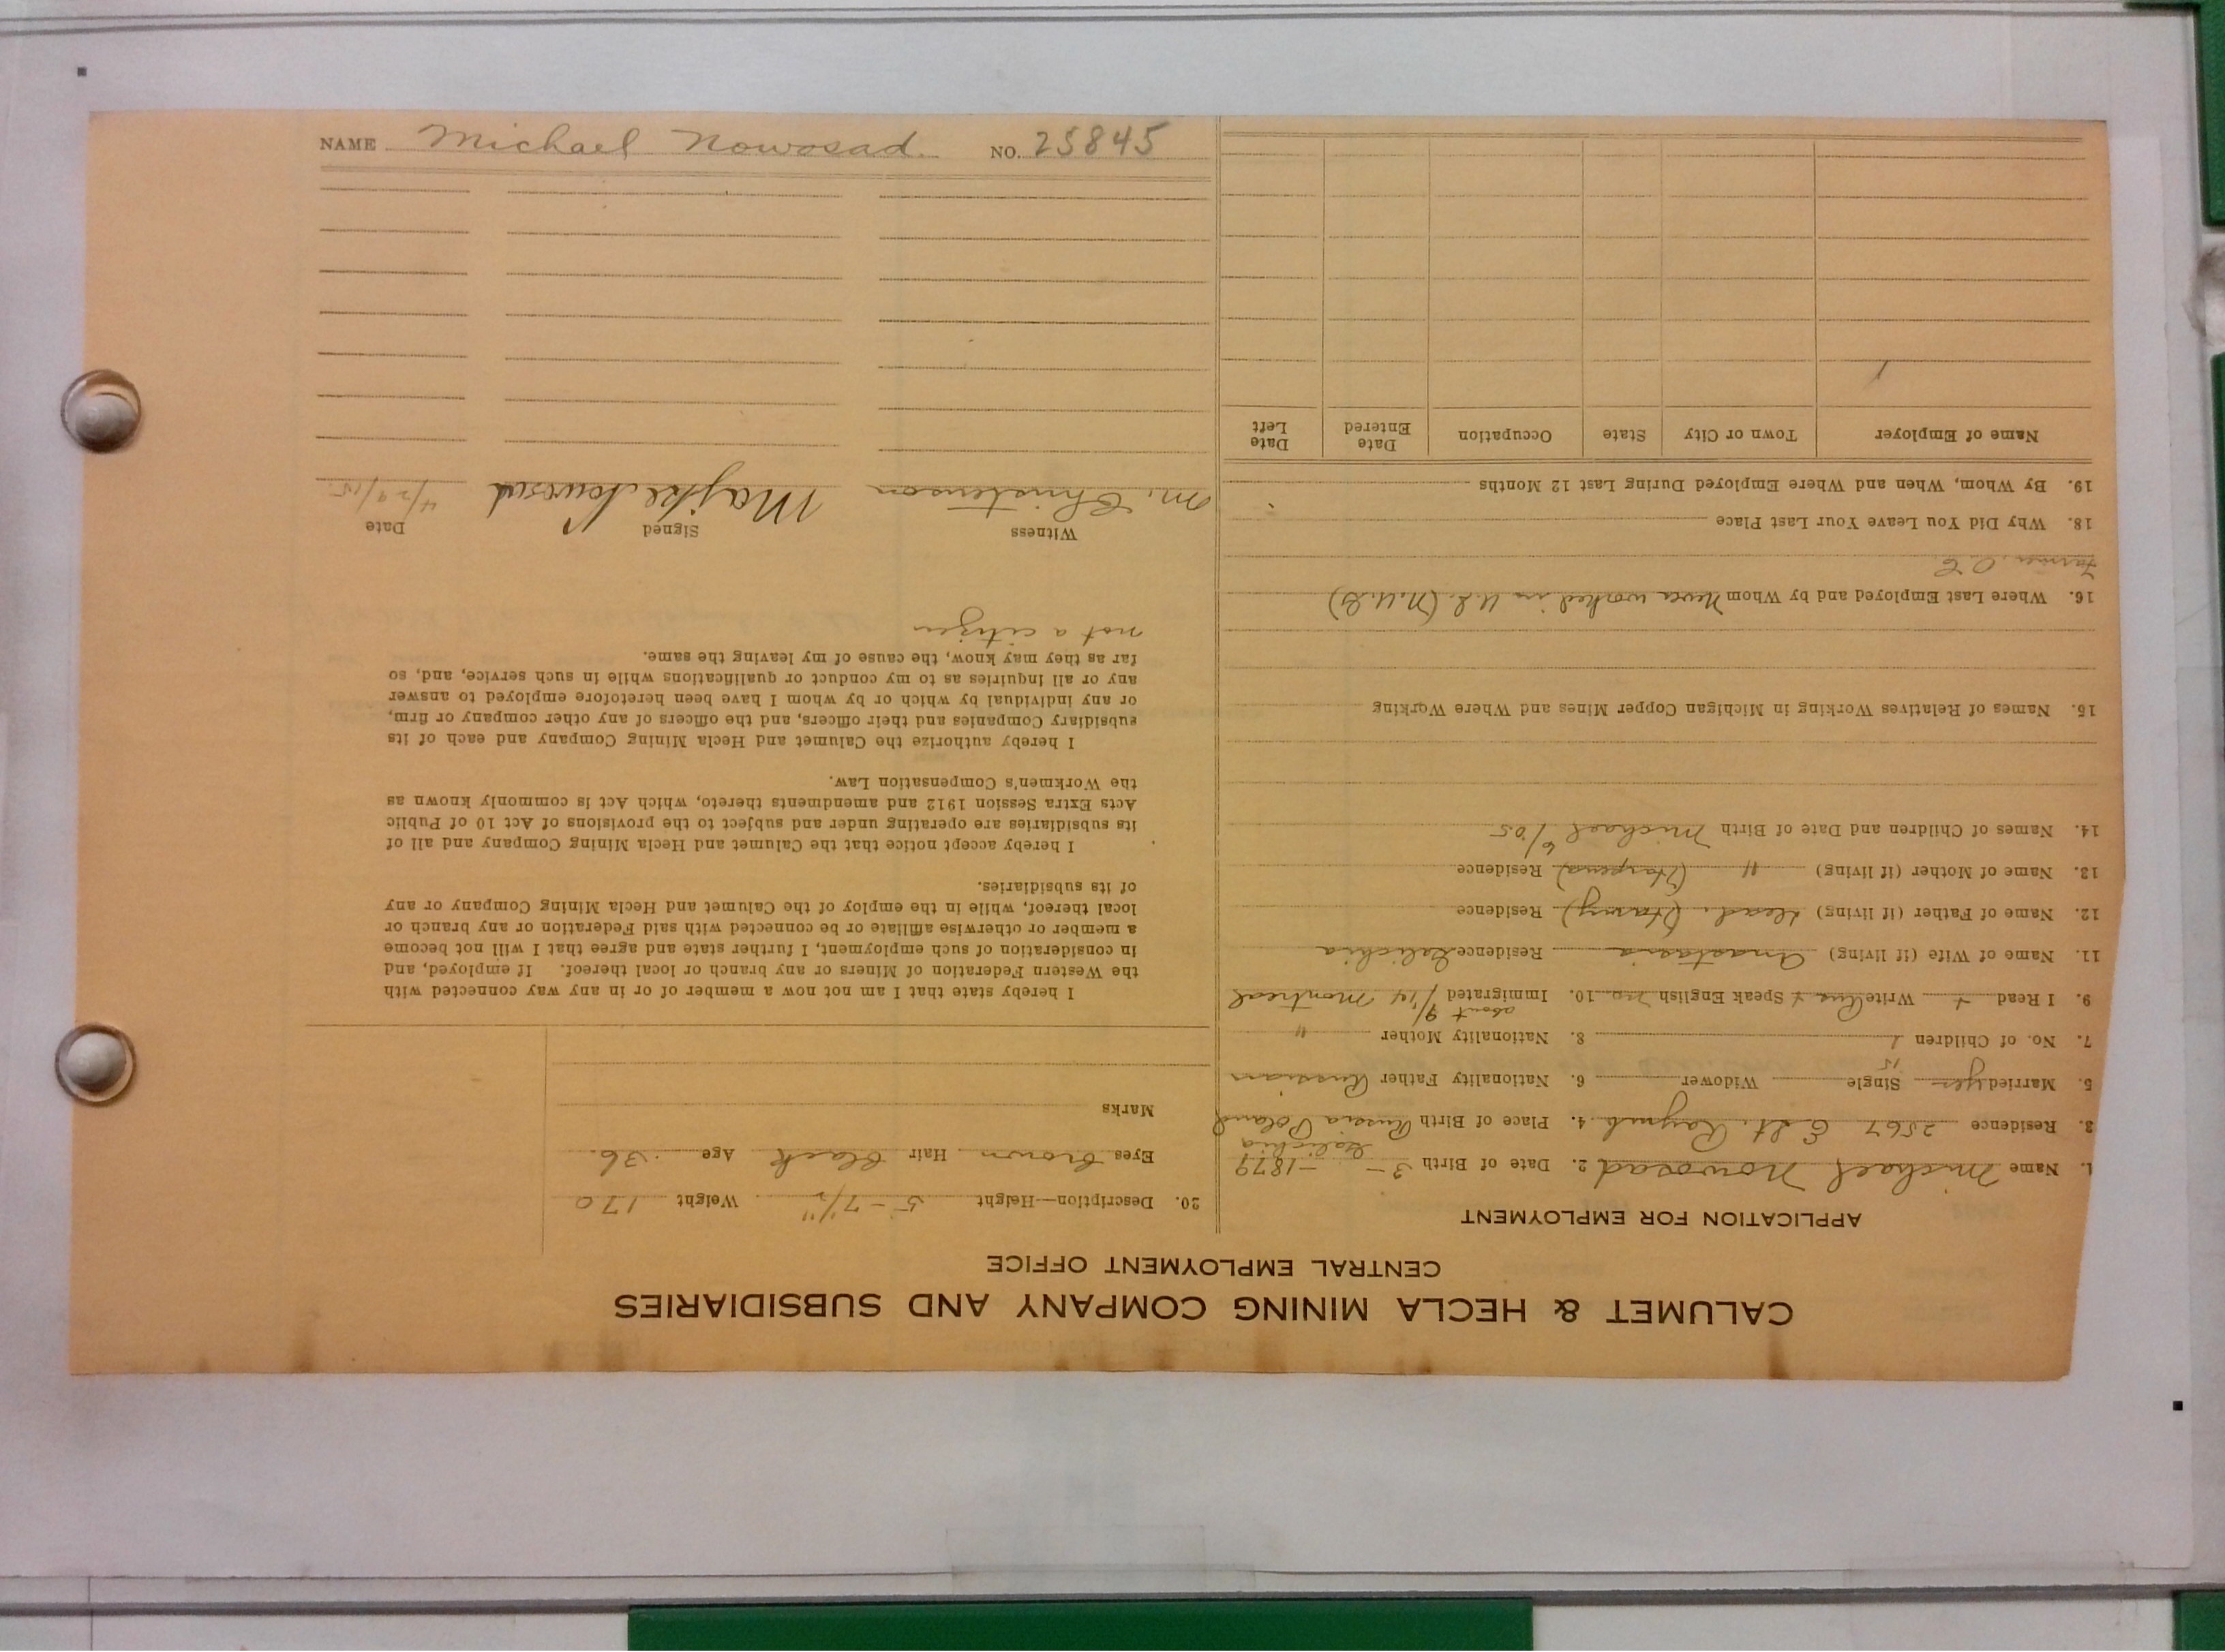 CALUMET & HECLA MINING COMPANY AND SUBSIDIARIES
CENTRAL EMPLOYMENT OFFICE
APPLICATION FOR EMPLOYMENT
1. Name Michael Nowosad 2. Date of Birth 3 - - 1879
Galichia
3. Residence 2567 E St. Raymb. 4. Place of Birth Russia Poland
5. Married yes Single Widower 6. Nationality Father Russian
15
7. No. of Children 1 8. Nationality Mother "
about
9. I Read + Write Rus + Speak English no 10. Immigrated 9/1/14 Montreal
11. Name of Wife (if living) Anastasia Residence Galichia
12. Name of Father (if living) dead. (Harry) Residence
13. Name of Mother (if living) " Residence
14. Names of Children and Date of Birth Michael 6/05
15. Names of Relatives Working in Michigan Copper Mines and Where Working
16. Where Last Employed and by Whom Never worked in U.S. (N.U.G)
Farmer. O.C.
18. Why Did You Leave Your Last Place
19. By Whom, When and Where Employed During Last 12 Months
Name of Employer Town or City State Occupation Date Entered Date Left
20. Description—Height 5 - 7 1/2" Weight 170
Eyes brown Hair Black Age 36.
Marks
I hereby state that I am not now a member of or in any way connected with
the Western Federation of Miners or any branch or local thereof. If employed, and
in consideration of such employment, I further state and agree that I will not become
a member or otherwise affiliate or be connected with said Federation or any branch or
local thereof, while in the employ of the Calumet and Hecla Mining Company or any
of its subsidiaries.
I hereby accept notice that the Calumet and Hecla Mining Company and all of
its subsidiaries are operating under and subject to the provisions of Act 10 of Public
Acts Extra Session 1912 and amendments thereto, which Act is commonly known as
the Workmen's Compensation Law.
I hereby authorize the Calumet and Hecla Mining Company and each of its
subsidiary Companies and their officers, and the officers of any other company or firm,
or any individual by which or by whom I have been heretofore employed to answer
any or all inquiries as to my conduct or qualifications while in such service, and, so
far as they may know, the cause of my leaving the same.
not a citizen
Witness Signed Date
M. Christenson Majke Nowosad 4/29/15
NAME Michael Nowosad. NO. 25845